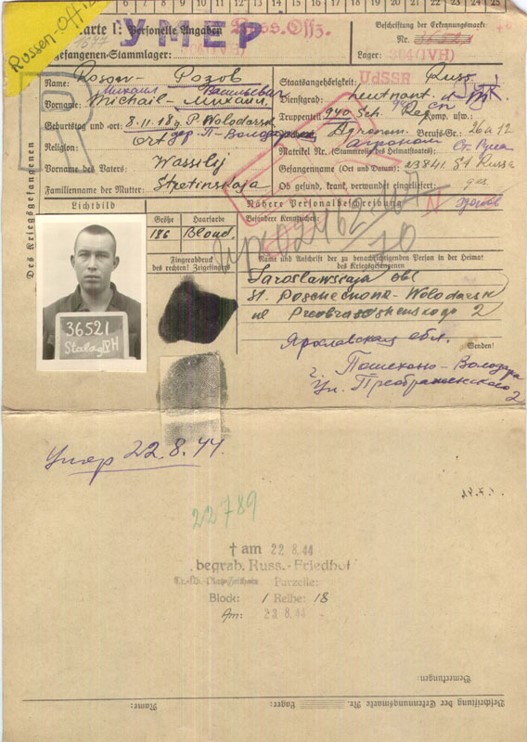 6 7 8 9 10 11 12 13 14 15 16 17 18 19 20 21 22 23 24 25
Russen-Offiz
УМЕР
Russ. Offz.
Karte I: Personelle Angaben
Beschriftung der Erkennungsmarke
Nr. 36521
Kriegsgefangenen-Stammlager:
Lager: 304 (IVH)
Des Kriegsgefangenen
R
Name: Rosow Розов
Михаил Васильевич
Vorname: Michail - Михаил
Geburtstag und -ort: 8.11.18 P. Wolodarsk
Religion:
Vorname des Vaters: Wassilij
Familienname der Mutter: Stretinskaja
Staatsangehörigkeit: UdSSR Russ.
Dienstgrad: Leutnant
Truppenteil: 940 Sch. Reg. Komp. usw.:
Zivilberuf: Agronom Berufs-Gr.: 26a12
агроном
Matrikel Nr. (Stammrolle des Heimatstaates):
Ст. Руса
Gefangennahme (Ort und Datum): 23841 St Russa
Ob gesund, krank, verwundet eingeliefert: ges.
здоров
Lichtbild
Nähere Personalbeschreibung
Größe Haarfarbe Besondere Kennzeichen:
186 Blond
Fingerabdruck
des rechten! Zeigefingers
Name und Anschrift der zu benachrichtigenden Person in der Heimat
des Kriegsgefangenen
Jaroslawskaja obl
St. Poschechono-Wolodarsk
ul Preobraschenskogo 2
Ярославская обл.
г. Пошехоно-Володарск
Ул. Преображенского 2
36521
Stalag IVH
Умер 22.8.44.
22789
† am 22 8. 44
begrab. Russ.-Friedhof
Parzelle:
Block: 1 Reihe: 18
Am: 23 8. 44
Bemerkungen:
Beschriftung der Erkennungsmarke Nr. Lager: Name: